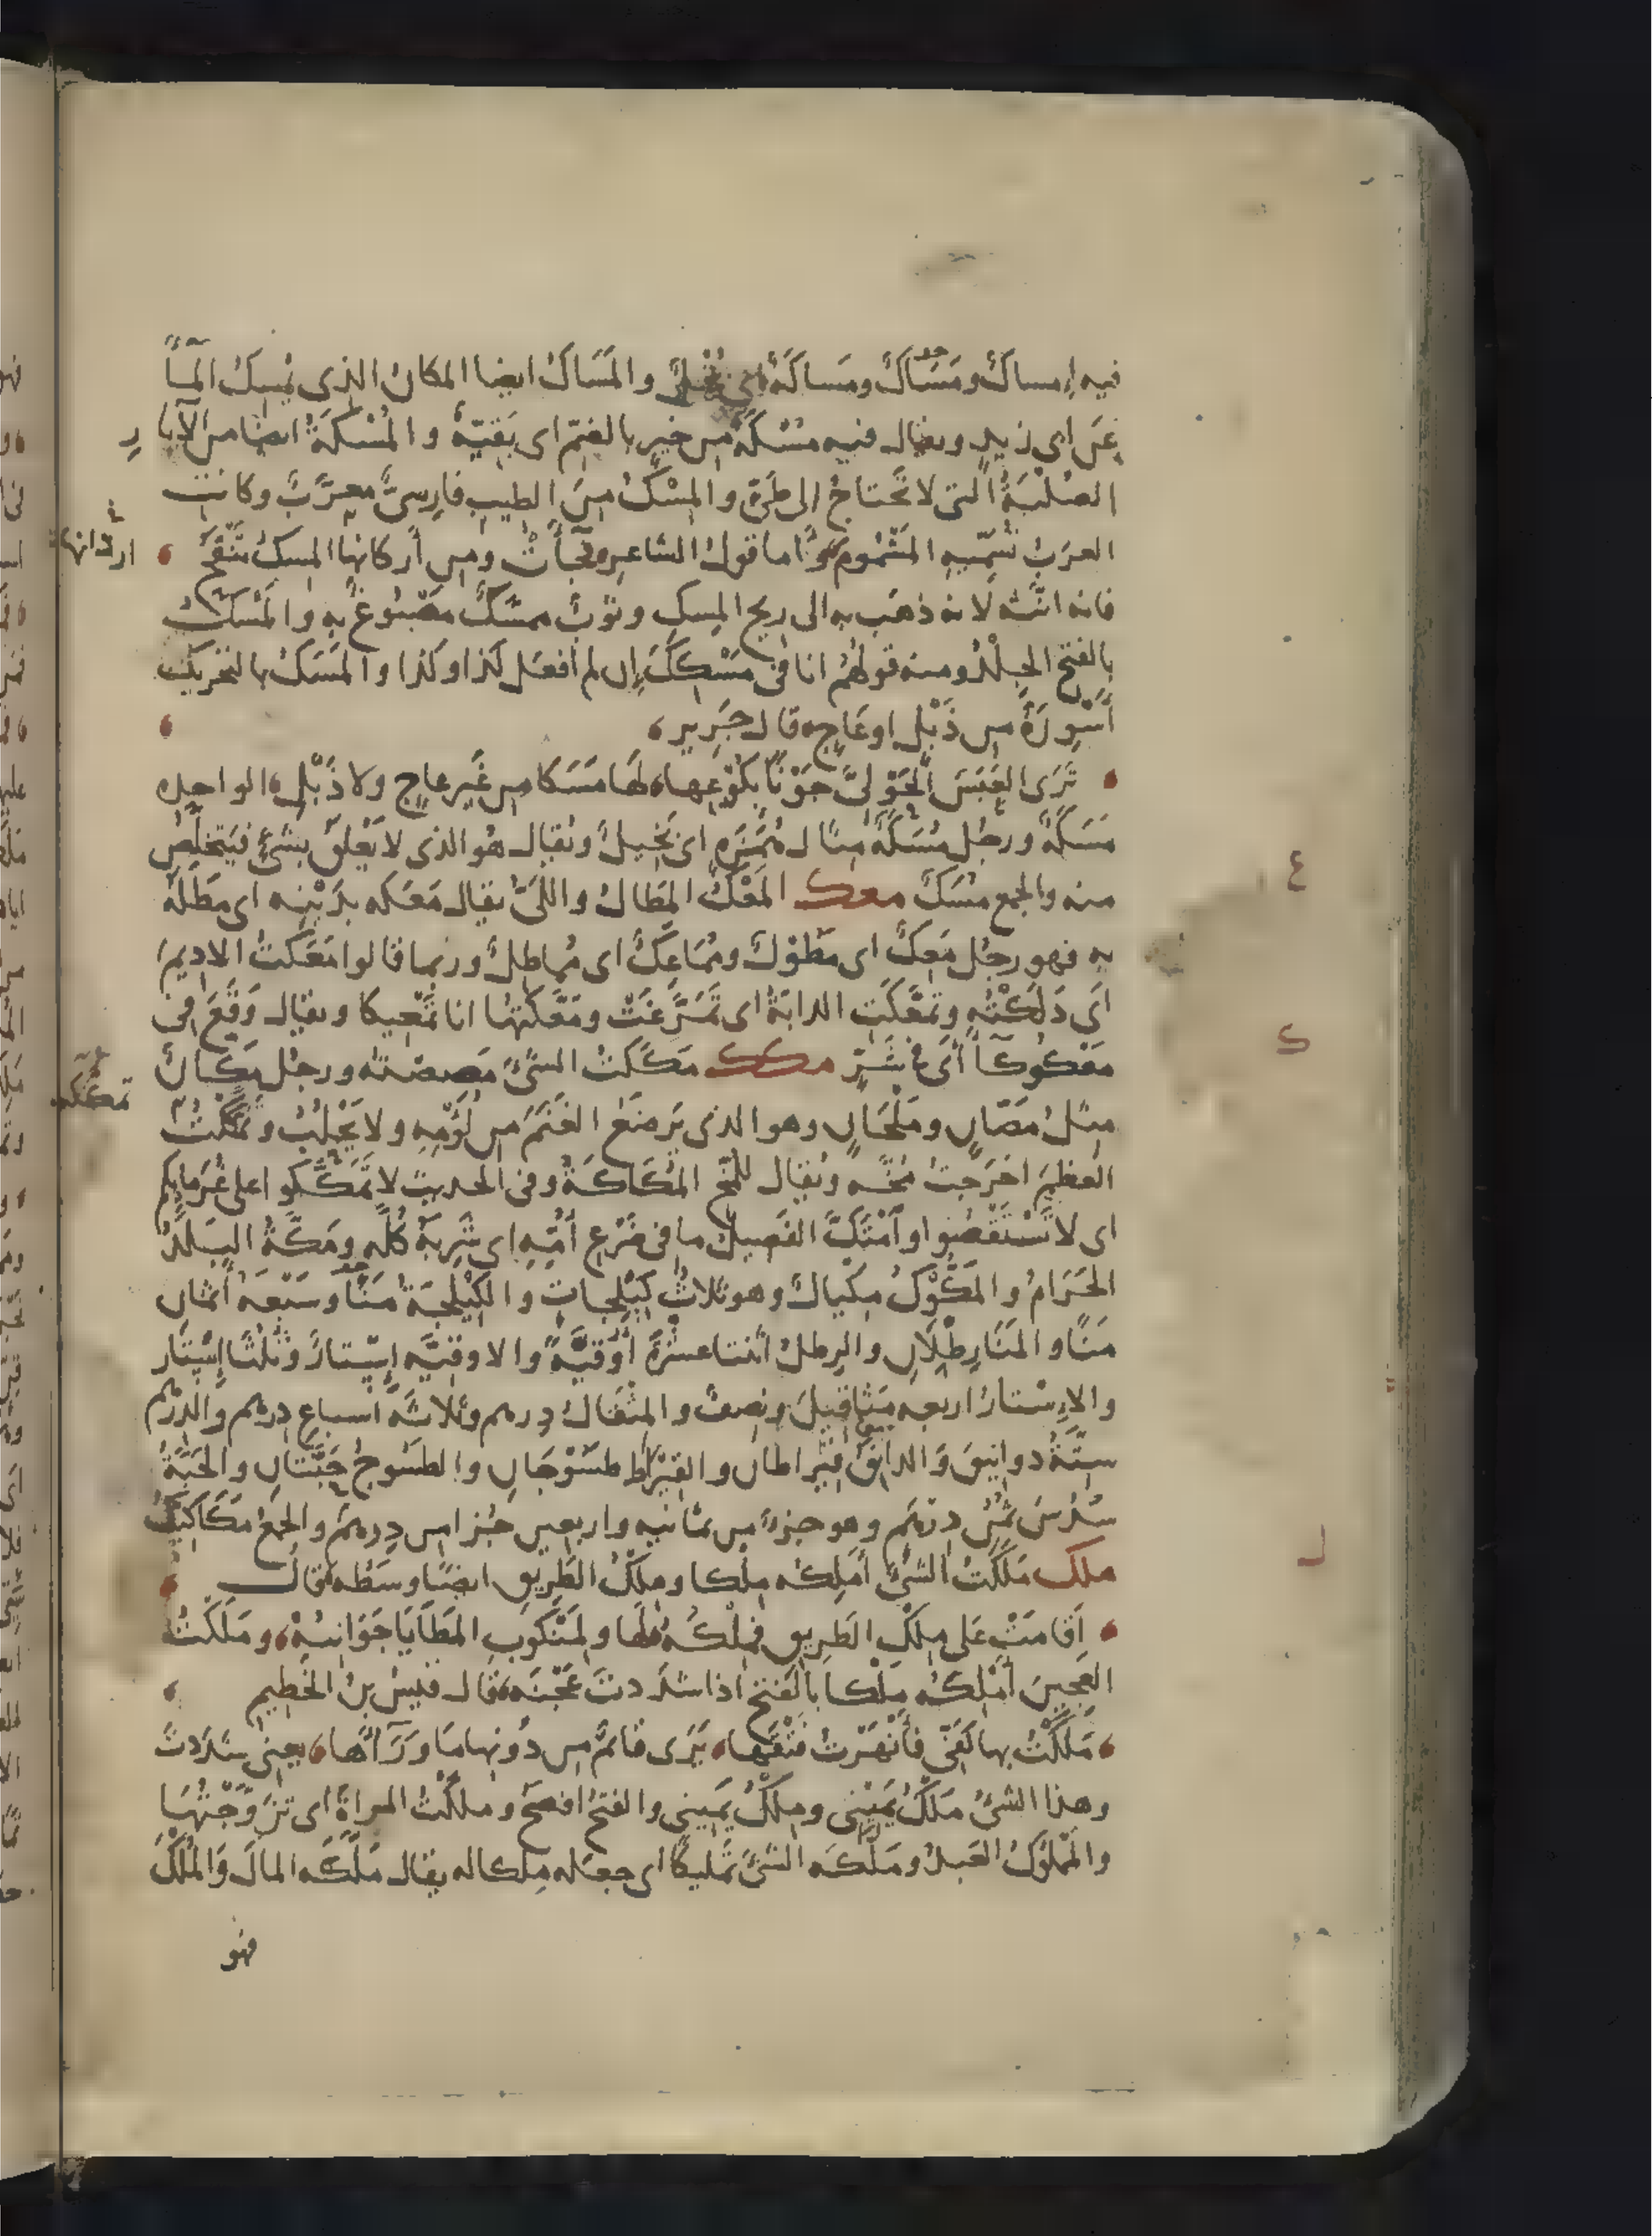 فيه إمساكٌ ومَسَاكٌ ومَساكَةٌ اي بُخْلٌ والمَسَاكُ ايضا المكان الذى يُمسِكُ المآءَ
عَن ابى زيدٍ ويقال فيه مُسْكَةٌ من خيرٍ بالضمّ اى بَقيّةٌ والمُسْكَةُ ايضا من الآبار
الصُلْبَةُ التى لا تَحتاجُ الى طَىٍّ والمِسْكُ مِنَ الطيبِ فارِسىٌّ معرَّبٌ وكانت
العرَبُ تُسَمّيهِ المَشْمُومَ واما قولُ الشاعرِ وقد جَآءَتْ ومِن أركانها المِسكُ تَنْفَحُ
اردانها
فانه انّثه لانه ذهَب به الى ريح المِسكِ وثَوبٌ ممسَّكٌ مَصْبُوغٌ بهِ والمَسْكُ
بالفتح الجِلْدُ ومنه قولهُم انا فى مَسْكِكَ اِن لم أفعَل كذا وكذا والمَسَكُ بالتحريكِ
أَسْوِرَةٌ مِن ذَبْلٍ او عَاجٍ قال جَرِير
تَرَى العَبَسَ الحَوْلىَّ جَوْناً بكُوعِها لهَا مَسَكا مِن غَيرِ عاجٍ ولا ذَبْلِ الواحِده
مَسَكَةٌ ورجُل مُسَكَةٌ مِثال هُمَزَةٍ اى بَخيلٌ ويُقال هو الذى لا يَعْلَق بشىءٍ فيَتَخَلَّصُ
منه والجمع مُسَكٌ معك المَعْكُ المِطالُ واللَىُّ يقال مَعَكه بدَيْنِه اى مَطَلَهُ
بهِ فهو رجُل مَعِكٌ اى مَطُولٌ ومُمَاعِكٌ اى مُماطِلٌ وربما قالوا مَعَكْتُ الاديمَ
اَى دَلَكْتُه وتَمَعَّكَتِ الدابّةُ اى تَمَرَّغَتْ ومَعَّكْتُها انا تَمْعيكا ويقال وَقَعَ فى
مَعْكوكآءَ أَى فى شَرٍّ مكك مَكَكْتُ الشىءَ مَصصْتُه ورجُل مَكَّانُ
مِثلُ مَصّانٍ ومَلْجَانٍ وهو الذى يَرضَعُ الغَنَمَ مِن لُؤمِهِ ولا يَحْلُبُ وتمكَّكْتُ
تمككه
العظمَ اخرَجتُ مُخَّه ويُقال للمُخّ المُكَاكَةُ وفى الحديث لا تَمَكَّكُوا على غُرَمايِكم
اى لا تَسْتَقْصُوا وآمْتَكَّ الفَصِيلُ ما فى ضَرْعِ أُمّهِ اى شَرِبَهُ كُلَّه ومَكَّةُ البَلَدُ
الحَرَامُ والمَكُّوكُ مِكْيالٌ وهو ثلاثُ كَيْلَجاتٍ والكَيْلَجَةُ مَنًا وسَبْعَةُ أَثْمانِ
مَنًا والمَنَا رِطْلَانِ والرِطلُ اثنتا عشرَةَ أُوقيَّةً والاوقيَّه إِسْتارٌ وثُلُثَا إِسْتار
والاِسْتارُ اربعه مَثاقيلَ ونِصفٌ والمِثْقَالُ دِرهم وثلاثَة أسباعِ دِرهم والدِرْهم
سِتّةُ دوانيقَ والدانقُ قيْراطان والقيْراط طَسُّوجَانِ والطَسُّوجُ حَبّتَانِ والحَبّةُ
سُدْسُ ثُمُنِ دِرْهَمٍ وهو جزءٌ من ثمانيه واربعين جُزا مِن دِرهَمٍ والجمعُ مَكَاكِيكُ
ملك مَلَكْتُ الشىءَ أَمْلِكه مِلْكا ومِلْكُ الطَرِيقِ ايضًا وسَطُه قال
اَقَامَتْ عَلى مِلْكِ الطَرِيقِ فمِلْكُه لهَا ولِمَنْكُوبِ المَطَايَا جَوَانِبُهْ ومَلَكْتُ
العَجِينَ أَمْلِكُه مَلْكا بالفَتح اذا شدَدتَ عَجْنَه قال قيسُ بنُ الخَطِيمِ
مَلَكْتُ بها كَفّى فأَنْهَرْتُ فَتْقَها يَرَى قائمٌ مِن دُونِها مَا وَرَآءَهَا يعنى شدَدتُ
وهذا الشىءُ مَلْكُ يَمينِى ومِلْكُ يَمِينى والفتحُ افصَحُ وملكْتُ المراةَ اى تَزَوَّجْتُهَا
والمَمْلُوكُ العَبدُ ومَلَّكَه الشىءَ تَمْليكًا اى جعَله مِلكا له يقال مَلَّكَه المالَ والمُلْكَ
فهو
ع
ك
ل